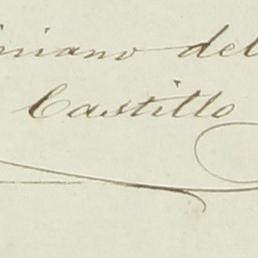 iniano del
Castillo